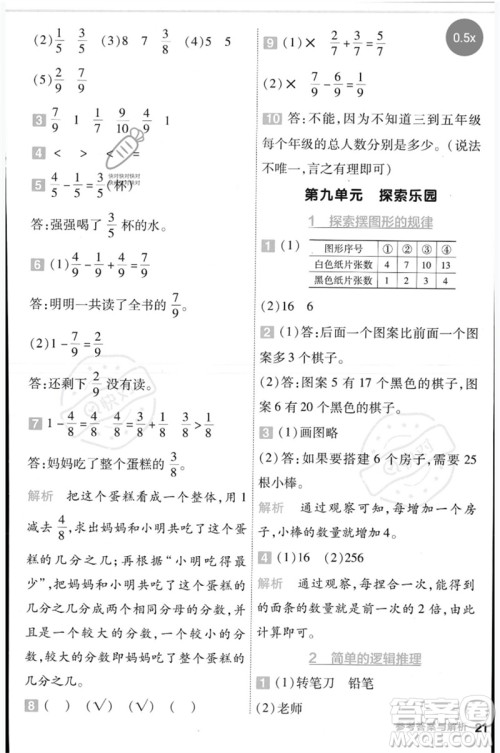 (2) 1/5 3/5 (3)8 7 8 (4)5 x
(5) 2/9 7/9
3 7/9 1 1/7 9/10 4/9 1
4 < > < =
5 4/5-1/5=3/5(杯)
答:强强喝了3/5杯的水。
6 (1)1/9+6/9=7/9
答:明明一共读了全书的7/9。
(2)1-7/9=2/9
答:还剩下2/9没有读。
7 1-4/8=4/8 4/8-1/8=3/8 3/8>1/8
答:妈妈吃了整个蛋糕的3/8。
解析 把这个蛋糕看成一个整体,用1
减去4/8,求出妈妈和小明吃了这个蛋
糕的几分之几;再根据“小明吃得最
少,妈妈吃得比小明多”,可知把4/8分
成两个同分母分数的和(其中一个
是较大的分数,一个是较小的分数),
较大的分数即妈妈吃了整个蛋糕的
几分之几。
8 ( ) ( ) (√) ( )
9 (1)× 2/7+3/7=5/7
(2)× 7/9-1/9=6/9
10 答:不能,因为不知道三到五年级
每个年级的总人数分别是多少。(说法
不唯一,言之有理即可)
第九单元 探索乐园
1 探索摆图形的规律
1 (1) 图形序号 ① ② ③ ④
白色纸片张数 4 7 10 13
黑色纸片张数 1 2 3 4
(2)16 6
2 (1)答:后面一个图案比前面一个图
案多3个棋子。
(2)答:图案5有17个黑色的棋子。
3 (1)画图略
(2)答:如果连续搭6个房子,需要25
根小棒。
解析 通过观察可知,每增加一个房
子,小棒的数量就增加4。
4 (1)16 (2)256
解析 通过观察,每扣一次,得到
的面条的数量就变为原来的2倍,由
此可解答。
2 简单的逻辑推理
1 (1)转笔刀 铅笔
(2)老师
0.5x
21